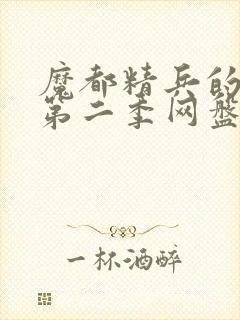 魔都精兵的
第二季网盘
一杯酒醉